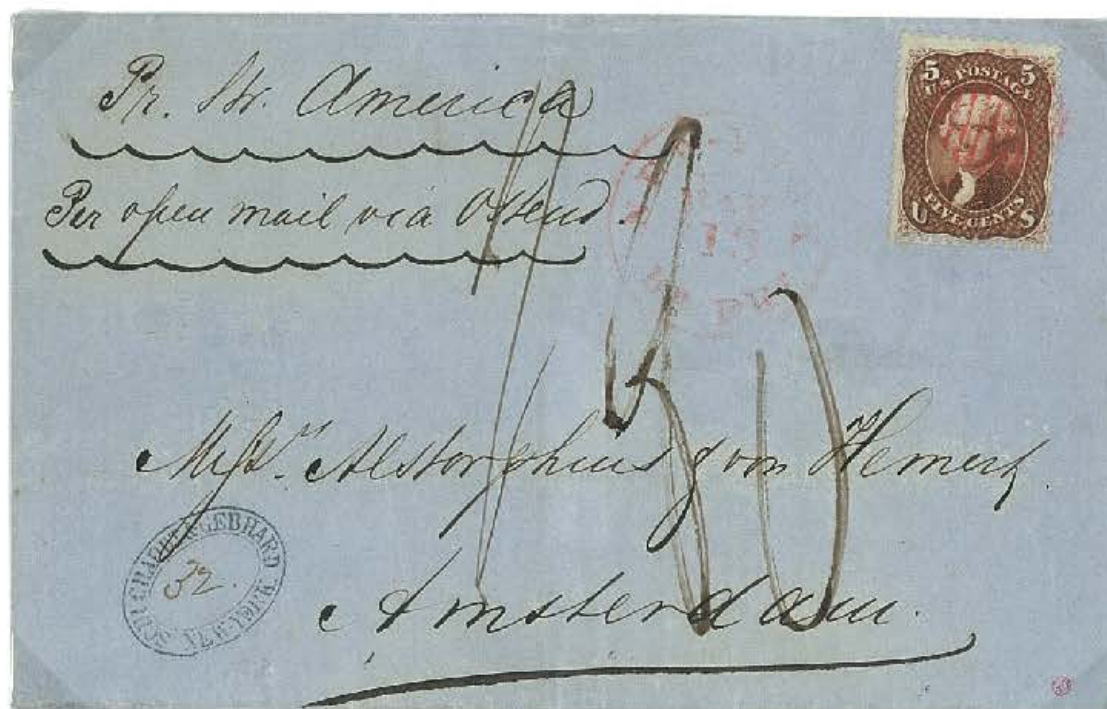 Pr. Str. America
Per open mail via Ostend.
5 U.S. POSTAGE 5
FIVE CENTS
U S
Messrs. Alstorphius & von Hemert
Amsterdam.
GEBHARD
32.
NEW-YORK